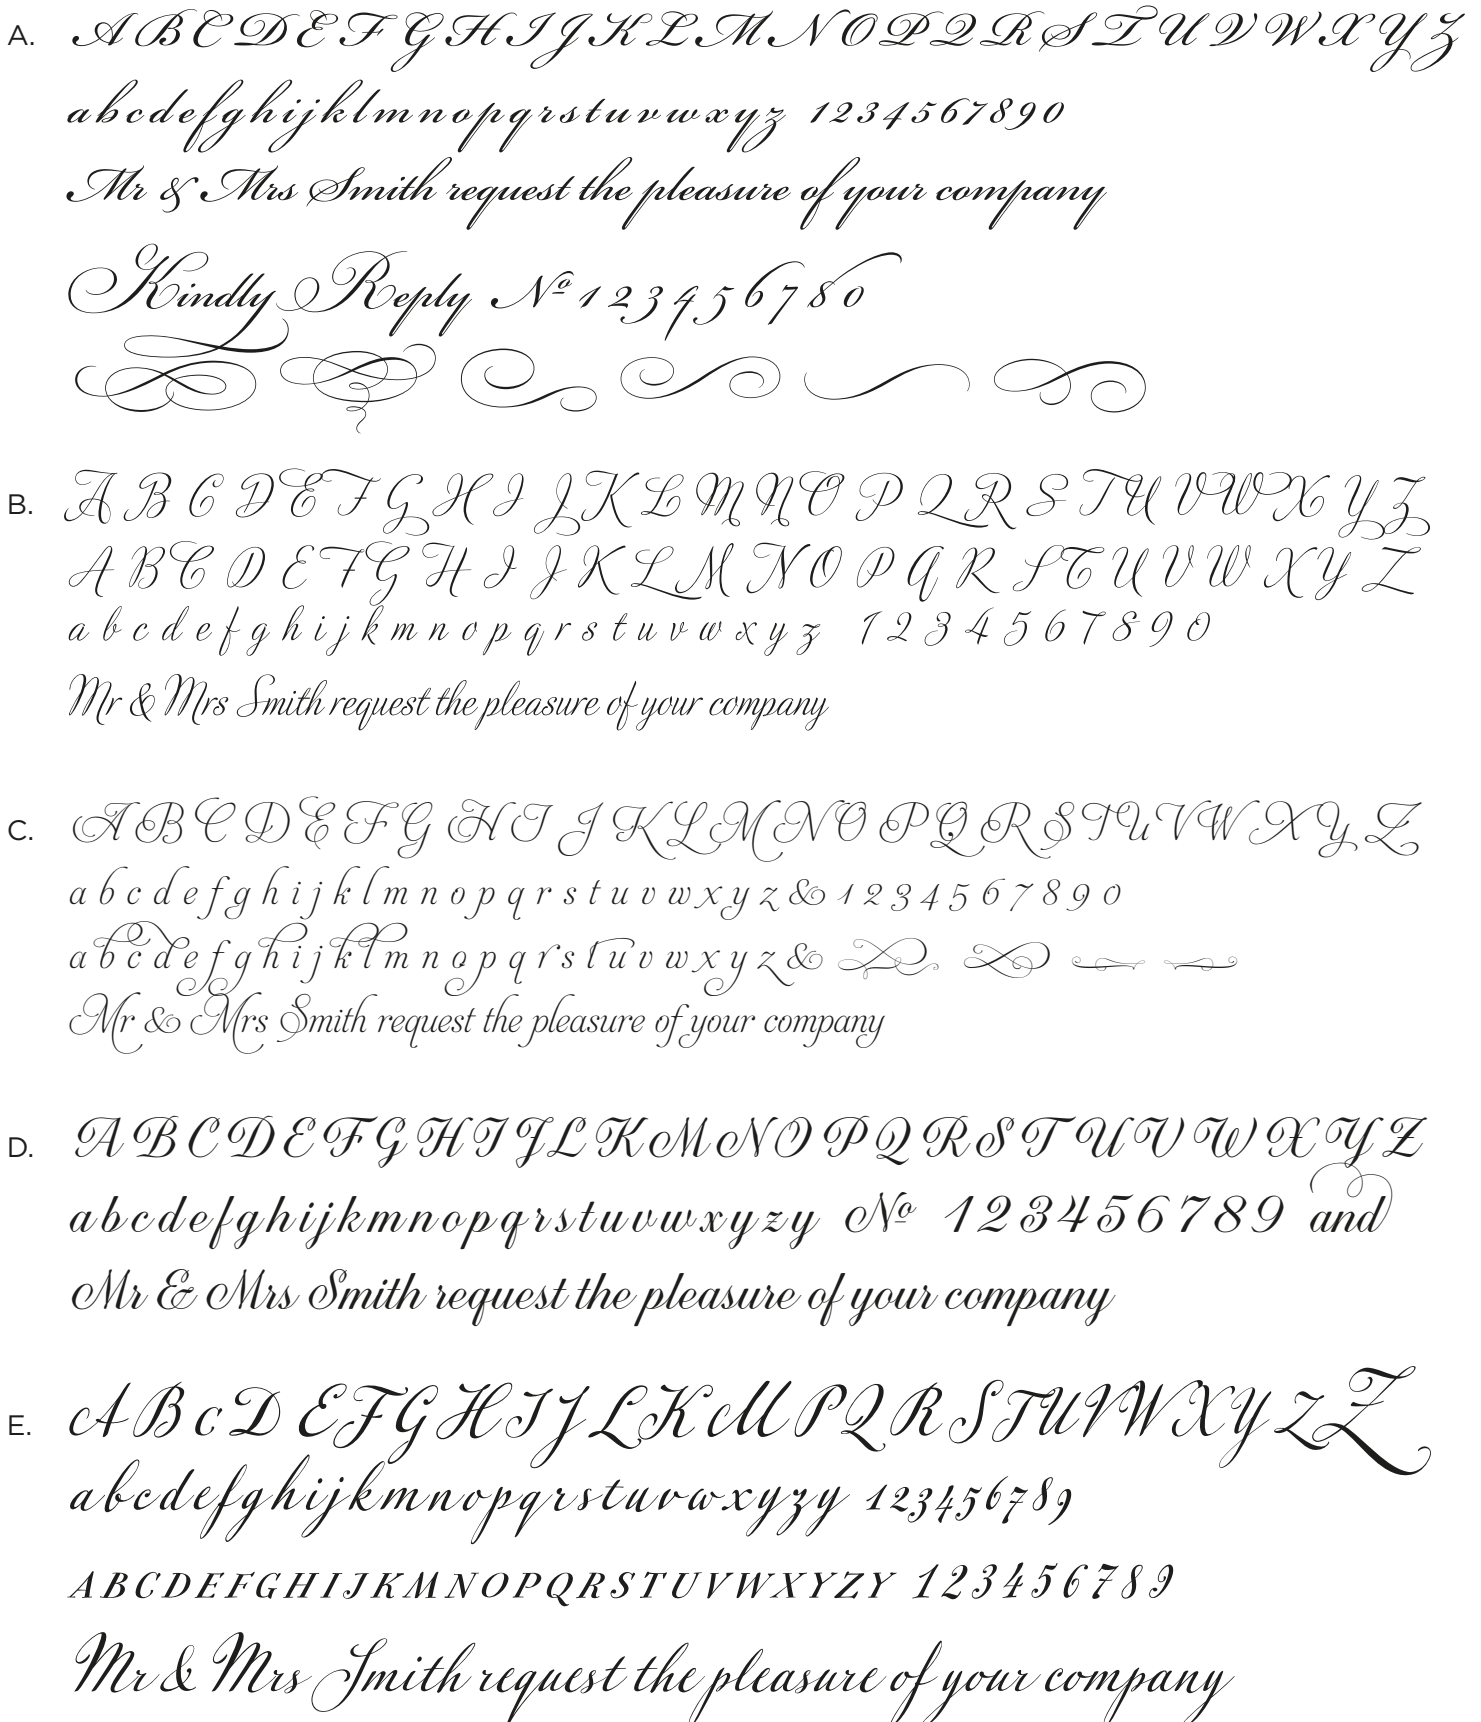 A. A B C D E F G H I J K L M N O P Q R S T U V W X Y Z
a b c d e f g h i j k l m n o p q r s t u v w x y z 1 2 3 4 5 6 7 8 9 0
Mr & Mrs Smith request the pleasure of your company
Kindly Reply Nº 1 2 3 4 5 6 7 8 0
B. A B C D E F G H I J K L M N O P Q R S T U V W X Y Z
A B C D E F G H I J K L M N O P Q R S T U V W X Y Z
a b c d e f g h i j k m n o p q r s t u v w x y z 1 2 3 4 5 6 7 8 9 0
Mr & Mrs Smith request the pleasure of your company
C. A B C D E F G H I J K L M N O P Q R S T U V W X Y Z
a b c d e f g h i j k l m n o p q r s t u v w x y z & 1 2 3 4 5 6 7 8 9 0
a b c d e f g h i j k l m n o p q r s t u v w x y z &
Mr & Mrs Smith request the pleasure of your company
D. A B C D E F G H I J L K M N O P Q R S T U V W X Y Z
a b c d e f g h i j k m n o p q r s t u v w x y z y Nº 1 2 3 4 5 6 7 8 9 and
Mr & Mrs Smith request the pleasure of your company
E. A B c D E F G H I J L K M P Q R S T U V W X Y Z Z
a b c d e f g h i j k m n o p q r s t u v w x y z y 1 2 3 4 5 6 7 8 9
A B C D E F G H I J K M N O P Q R S T U V W X Y Z Y 1 2 3 4 5 6 7 8 9
Mr & Mrs Smith request the pleasure of your company